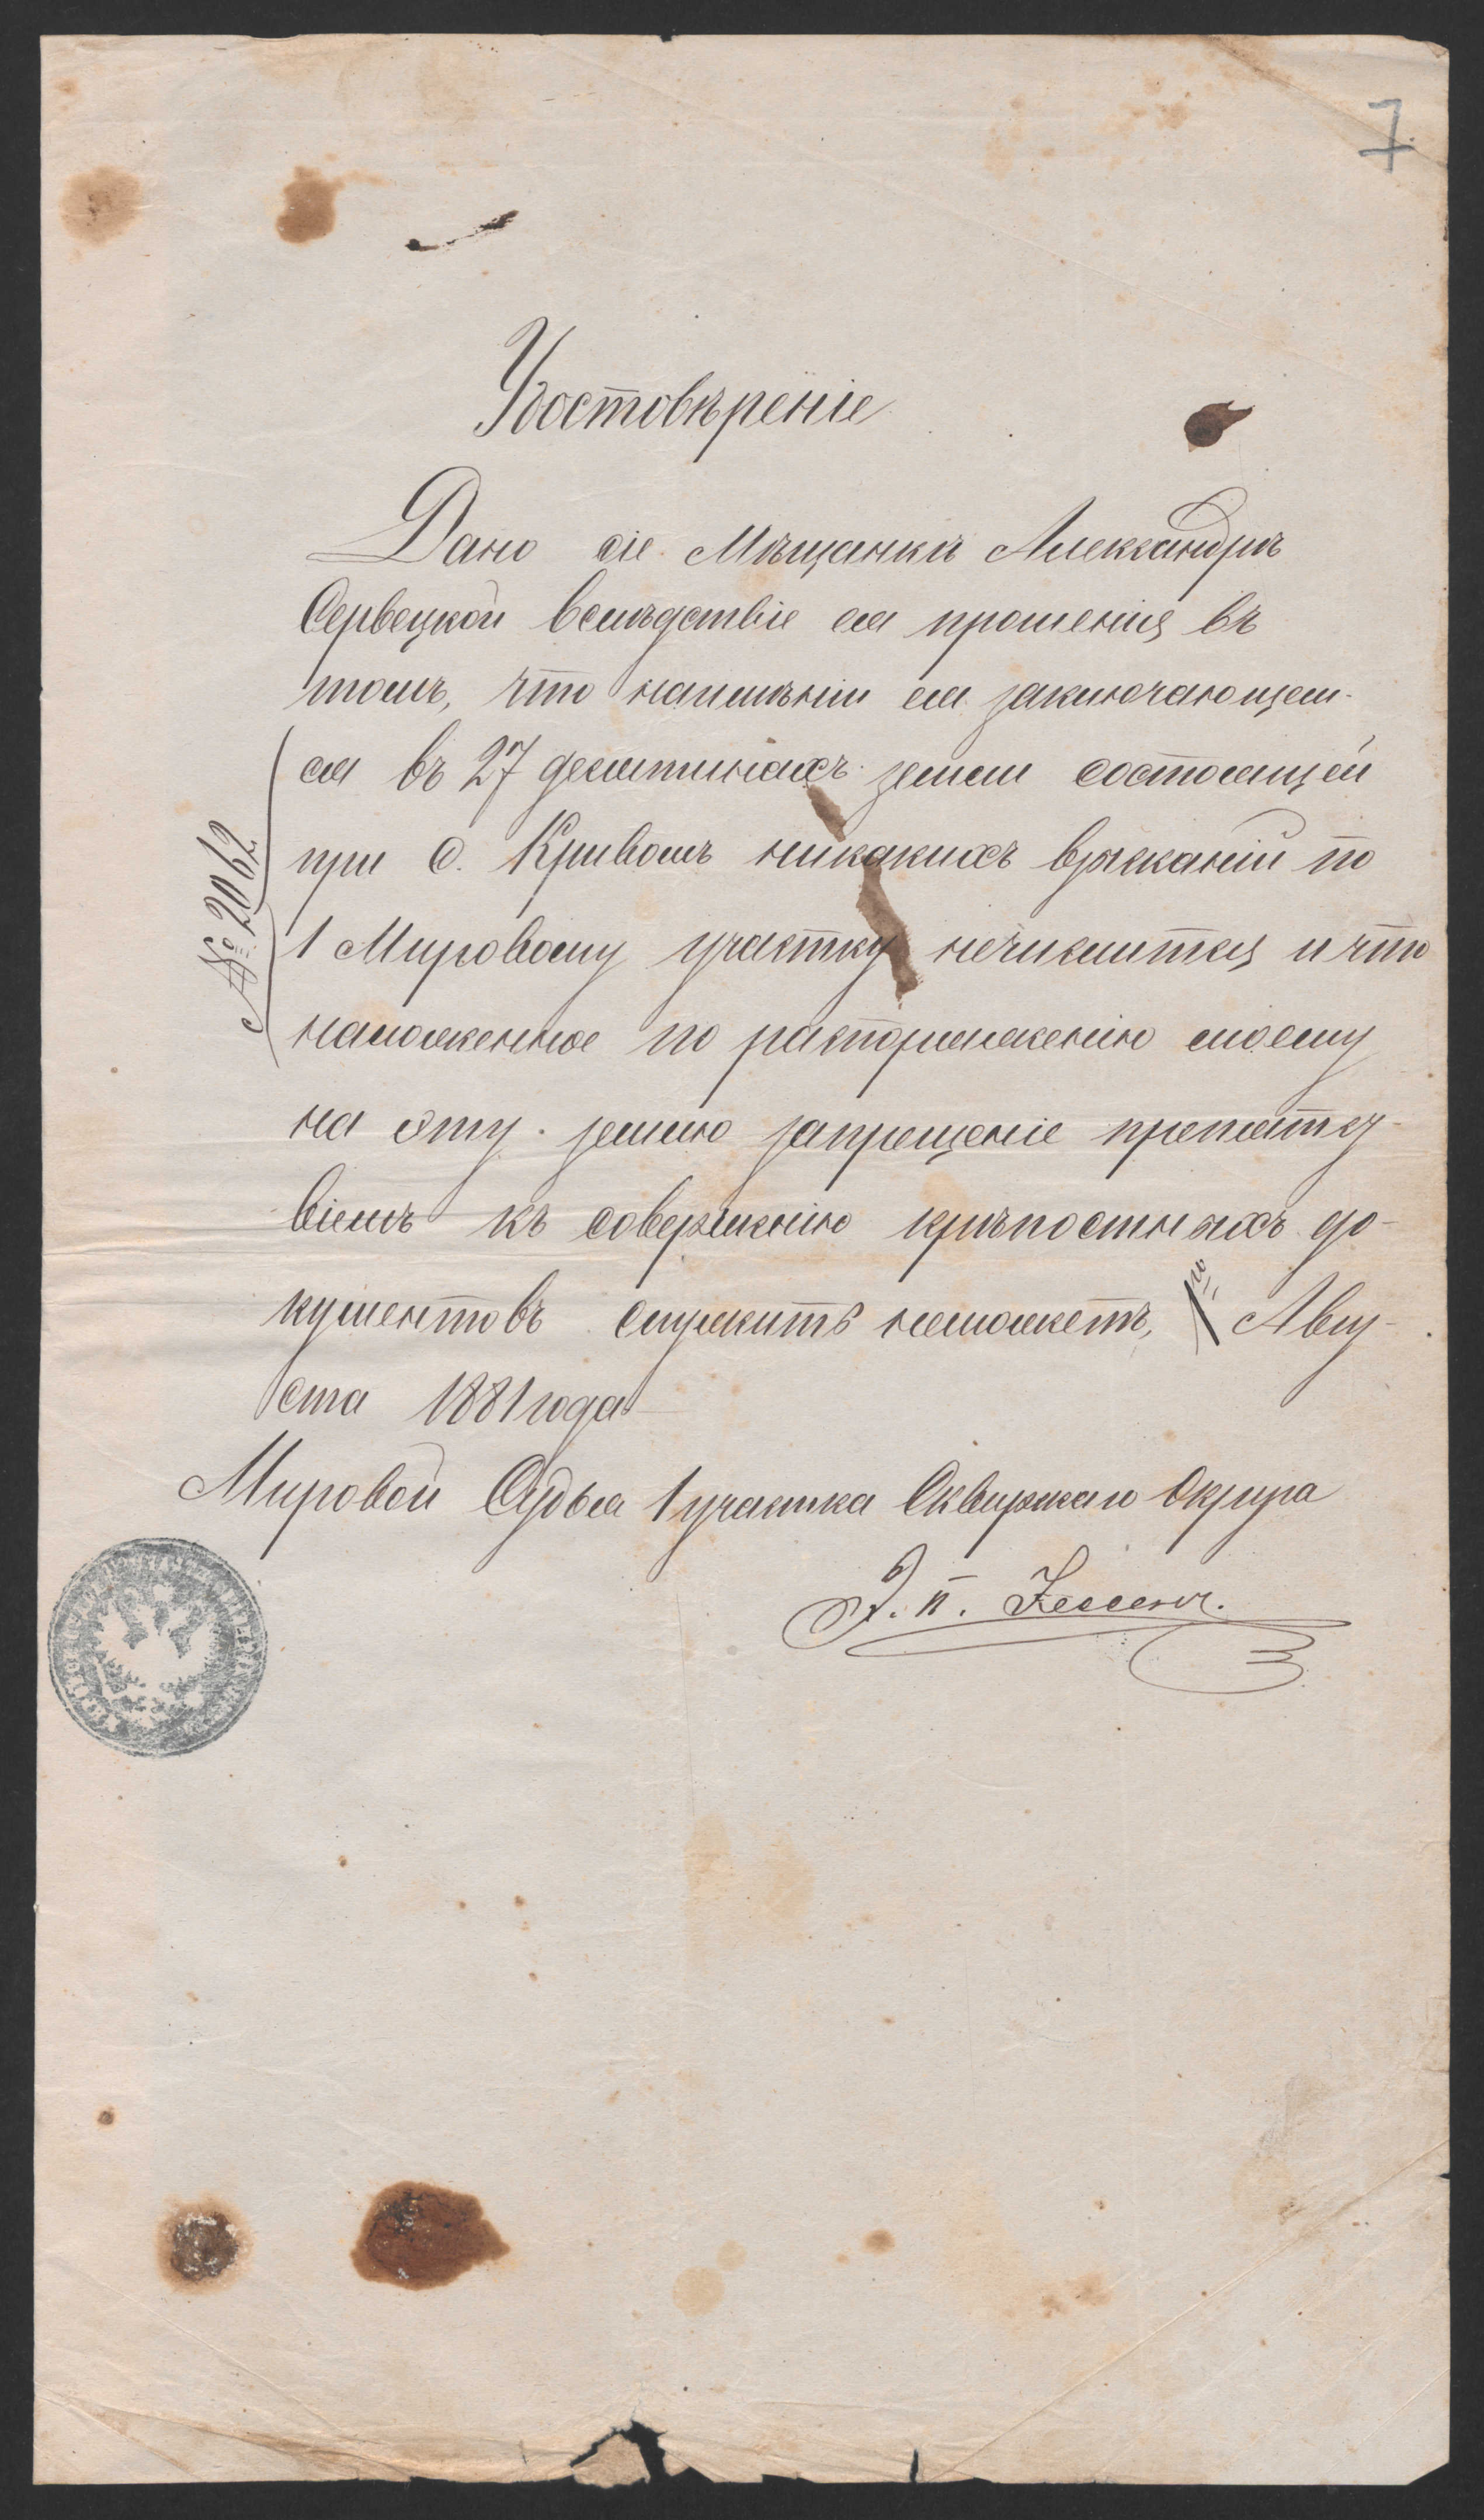 7
Удостовѣреніе
Дано сіе Мѣщанкѣ Александрѣ
Сервецкой вслѣдствіе ея прошенія въ
томъ, что наимѣніи ея заключающем-
ся въ 27 десятинахъ земли состоящей
при с. Кривомъ никакихъ взысканій по
1 Мировому участку нечислится и что
наложенное по распоряженію моему
на эту землю запрещеніе препятст-
віемъ къ совершенію крѣпостныхъ до-
кументовъ служитъ неможетъ, 1го Авгу-
ста 1881 года
№ 2062
Мировой Судья 1 участка Сквирскаго Округа